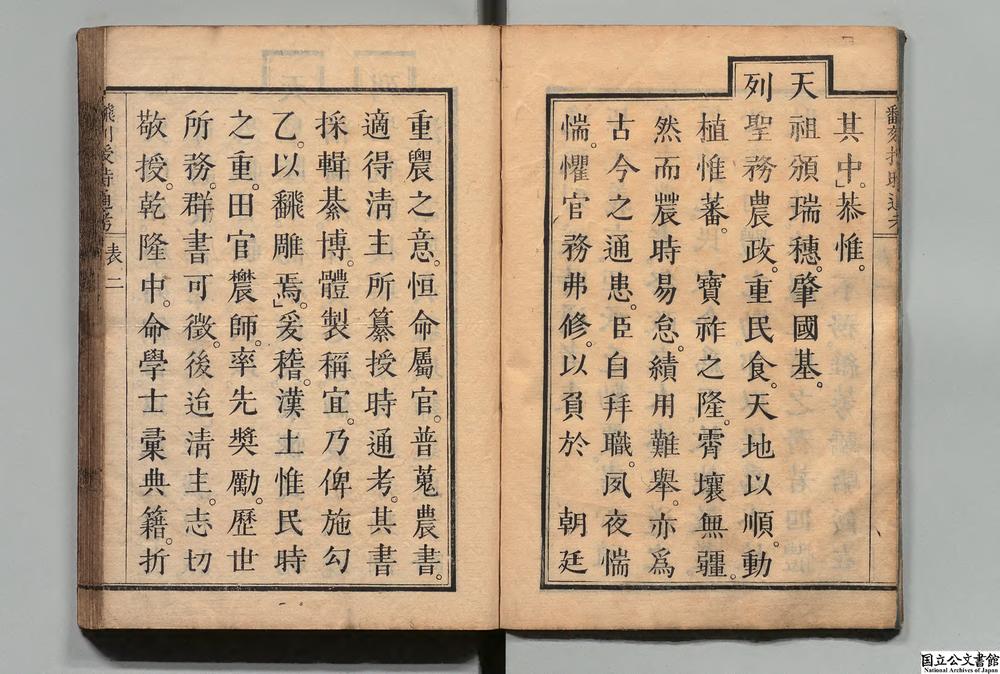 其中。恭惟。
天祖頒瑞穗。肇國基。
列聖務農政。重民食。天地以順。動
植惟蕃。寶祚之隆。霄壤無疆。
然而農時易怠。績用難舉。亦爲
古今之通患。臣自拜職。夙夜惴
惴。懼官務弗修。以負於 朝廷
重農之意。恒命屬官。普蒐農書。
適得淸主所纂授時通考。其書
採輯綦博。體製稱宜。乃俾施勾
乙。以飜雕焉。爰稽漢土惟民時
之重。田官農師。率先奬勵。歷世
所務。群書可徵。後迨淸主。志切
敬授。乾隆中。命學士彙典籍。折
飜刻授時通考
表
二
国立公文書館
National Archives of Japan